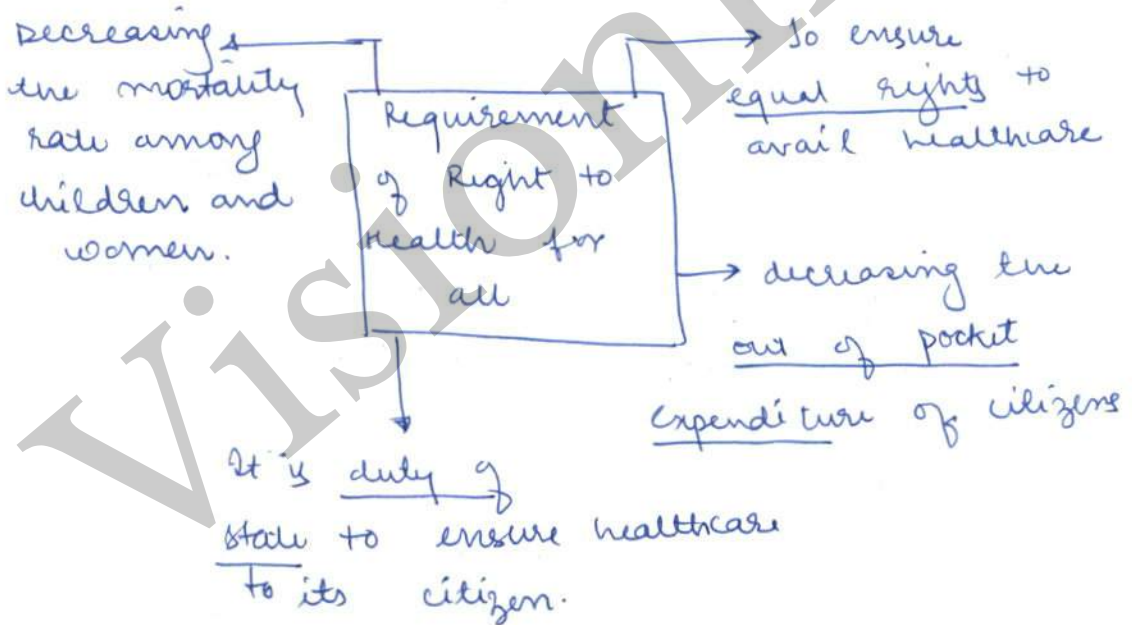 Decreasing
the mortality
rate among
children and
women.
Requirement
of Right to
Health for
all
To ensure
equal rights to
avail healthcare
decreasing the
out of pocket
expenditure of citizens
It is duty of
state to ensure healthcare
to its citizen.
Vision